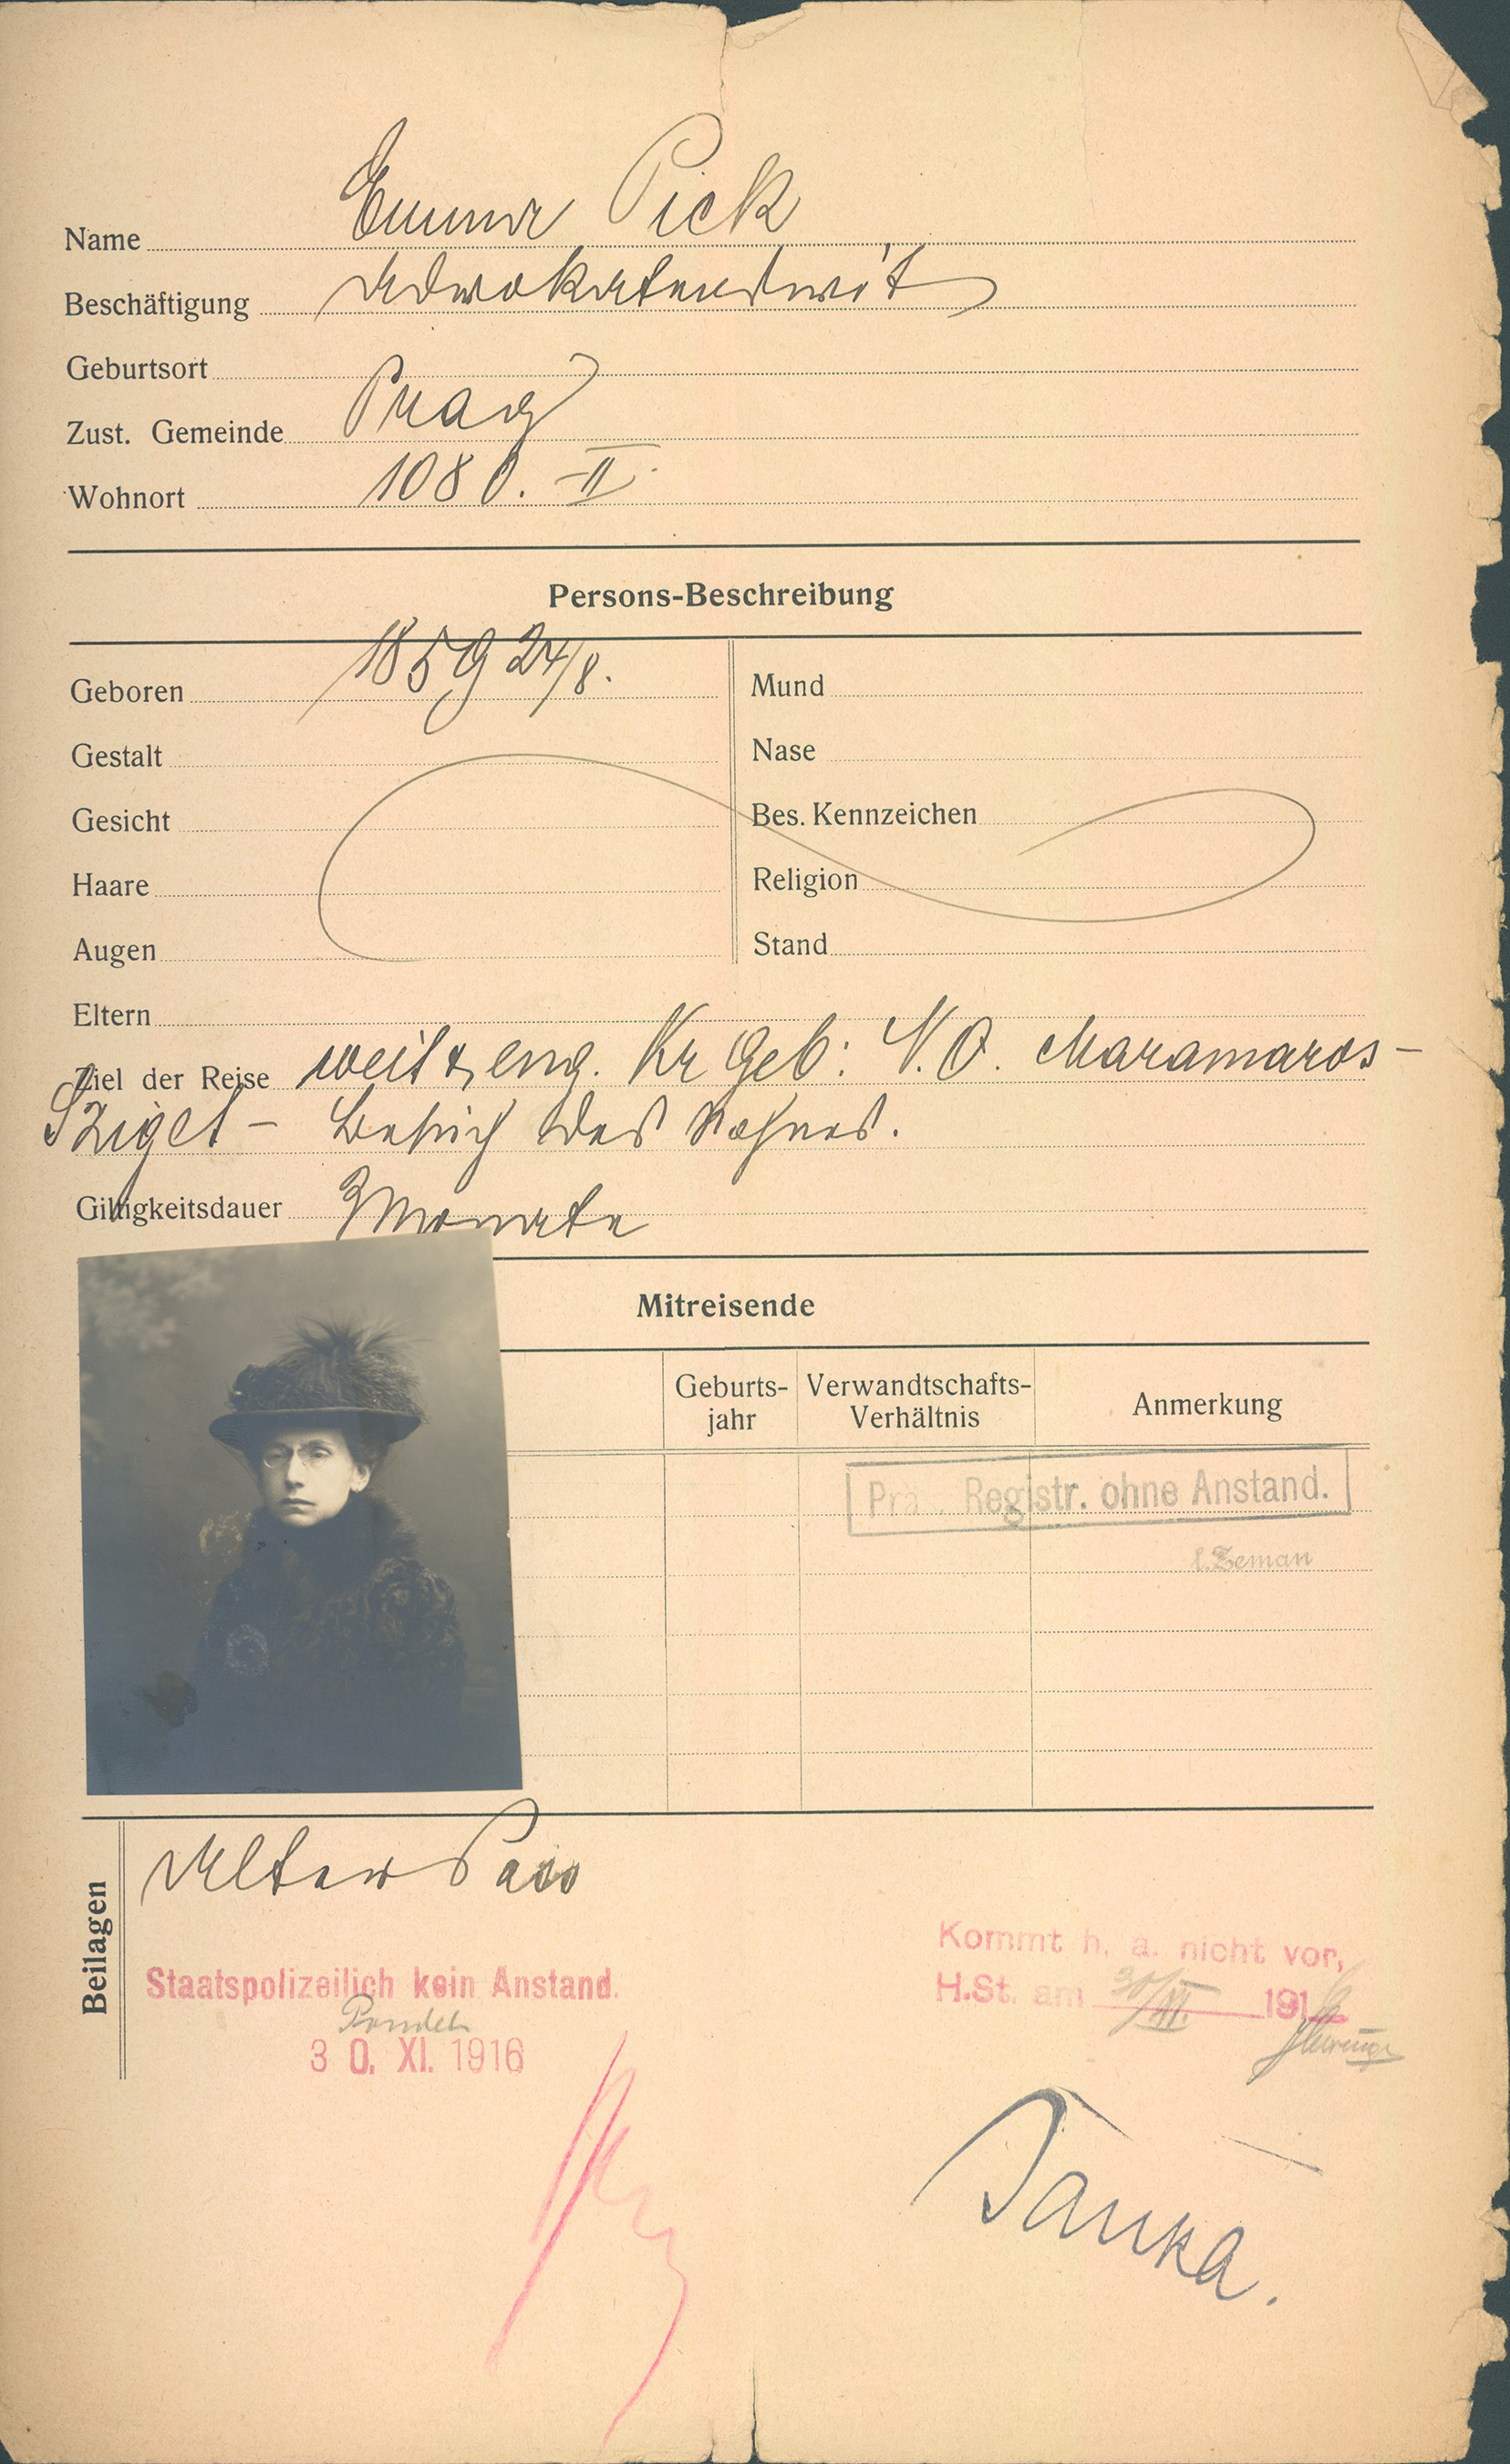 Name Emma Pick
Beschäftigung Advokatenswit
Geburtsort
Zust. Gemeinde Prag
Wohnort 1080. II.
Persons-Beschreibung
Geboren 1859 24/8.
Mund
Gestalt
Nase
Gesicht
Bes. Kennzeichen
Haare
Religion
Augen
Stand
Eltern
Ziel der Reise weit & eng. Kr Geb: N.O. Maramaros-
Sziget - Besuch des Sohnes.
Giltigkeitsdauer 3 Monate
Mitreisende
Geburts-
jahr
Verwandtschafts-
Verhältnis
Anmerkung
Präs. Registr. ohne Anstand.
Zeman
Beilagen
Alter Pass
Staatspolizeilich kein Anstand.
30. XI. 1916
Kommt h. a. nicht vor,
H.St. am 30/XI. 1916
Tauka.